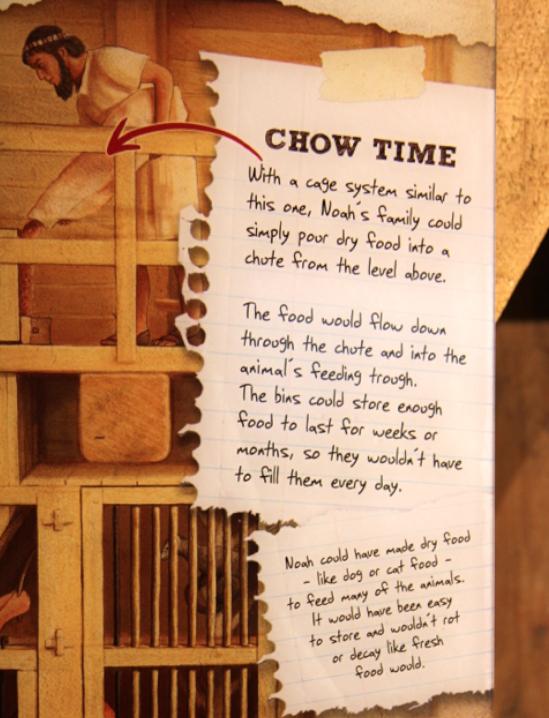 CHOW TIME
With a cage system similar to
this one, Noah's family could
simply pour dry food into a
chute from the level above.
The food would flow down
through the chute and into the
animal's feeding trough.
The bins could store enough
food to last for weeks or
months, so they wouldn't have
to fill them every day.
Noah could have made dry food
- like dog or cat food -
to feed many of the animals.
It would have been easy
to store and wouldn't rot
or decay like fresh
food would.